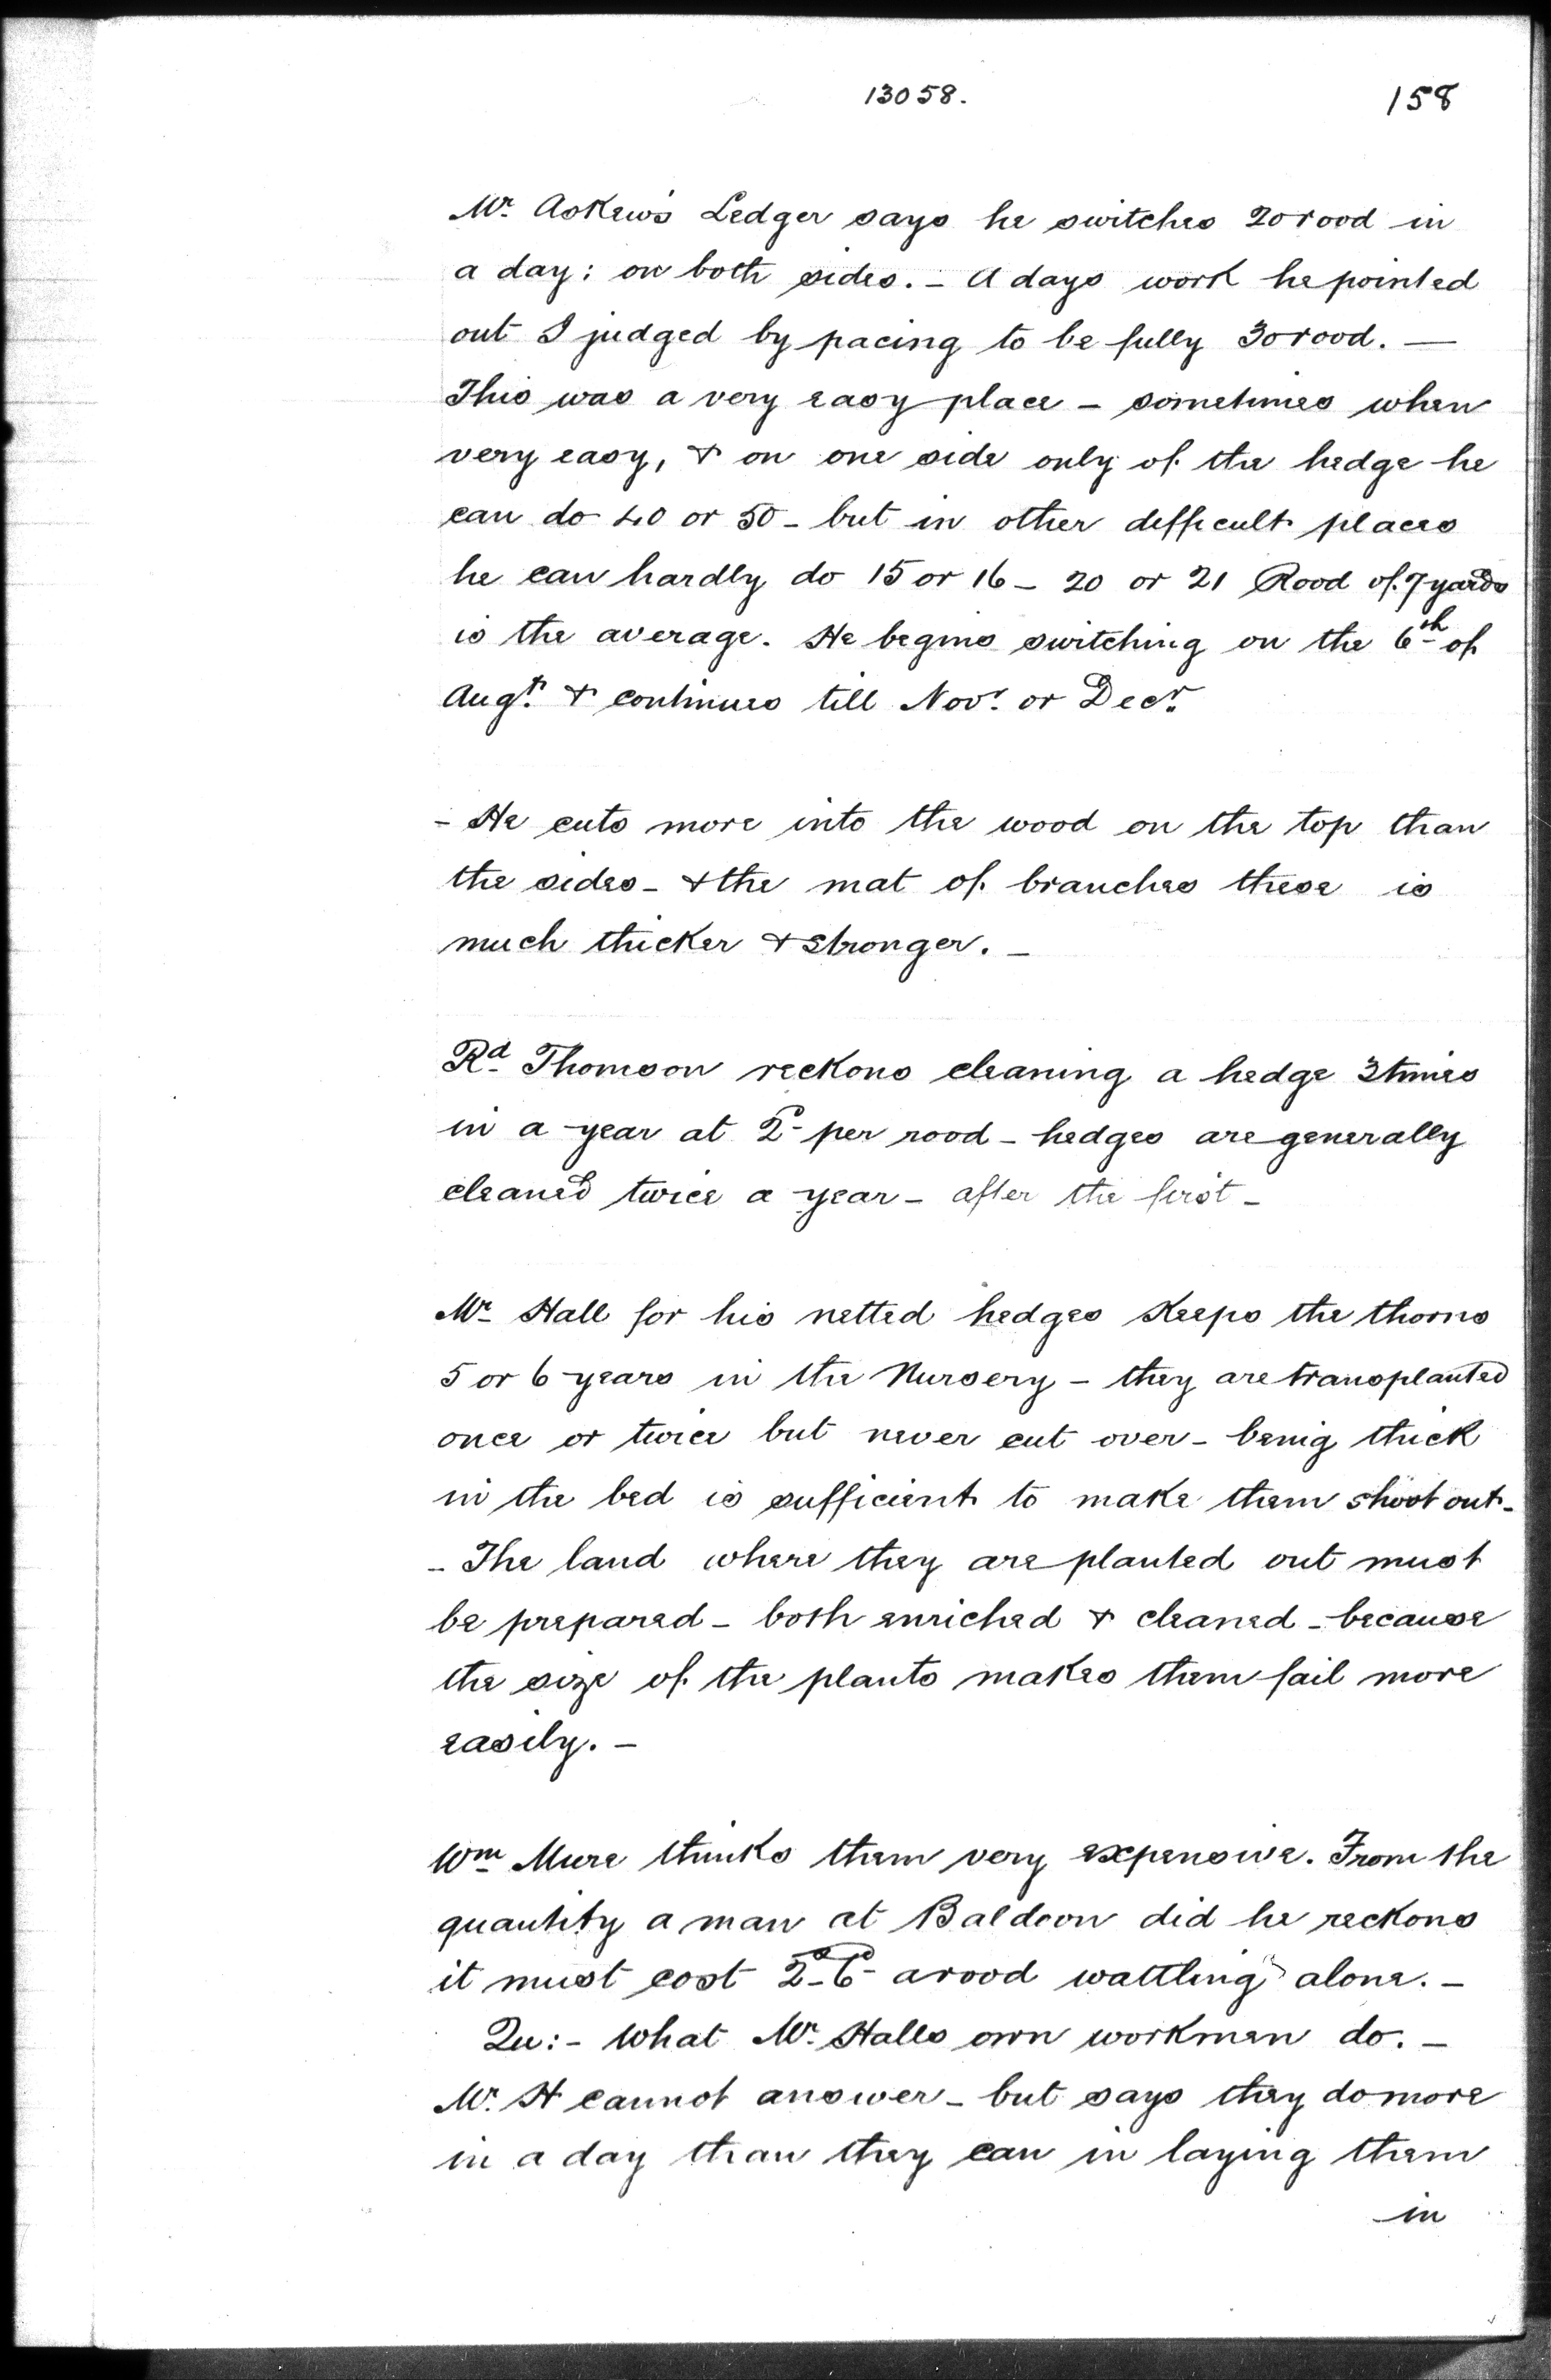 13058.
158
Mr. Askew's Ledger says he switches 20 rood in
a day: on both sides. - A days work he pointed
out I judged by pacing to be fully 30 rood. —
This was a very easy place - sometimes when
very easy, & on one side only of the hedge he
can do 40 or 50 - but in other difficult places
he can hardly do 15 or 16 - 20 or 21 Rood of 7 yards
is the average. He begins switching on the 6th of
Augt. & continues till Novr. or Decr.
- He cuts more into the wood on the top than
the sides - & the mat of branches these is
much thicker & stronger. -
Rd Thomson reckons cleaning a hedge 3 times
in a year at 2d per rood - hedges are generally
cleaned twice a year - after the first -
Mr Hall for his netted hedges Keeps the thorns
5 or 6 years in the Nursery - they are transplanted
once or twice but never cut over - being thick
in the bed is sufficient to make them shoot out -
- The land where they are planted out must
be prepared - both enriched & cleaned - because
the size of the plants makes them fail more
easily. -
Wm Mure thinks them very expensive. From the
quantity a man at Baldoon did he reckons
it must cost 2s-6d a rood wattling alone. -
Qu: - What Mr. Halls own workmen do. -
Mr. H cannot answer - but says they do more
in a day than they can in laying them
in